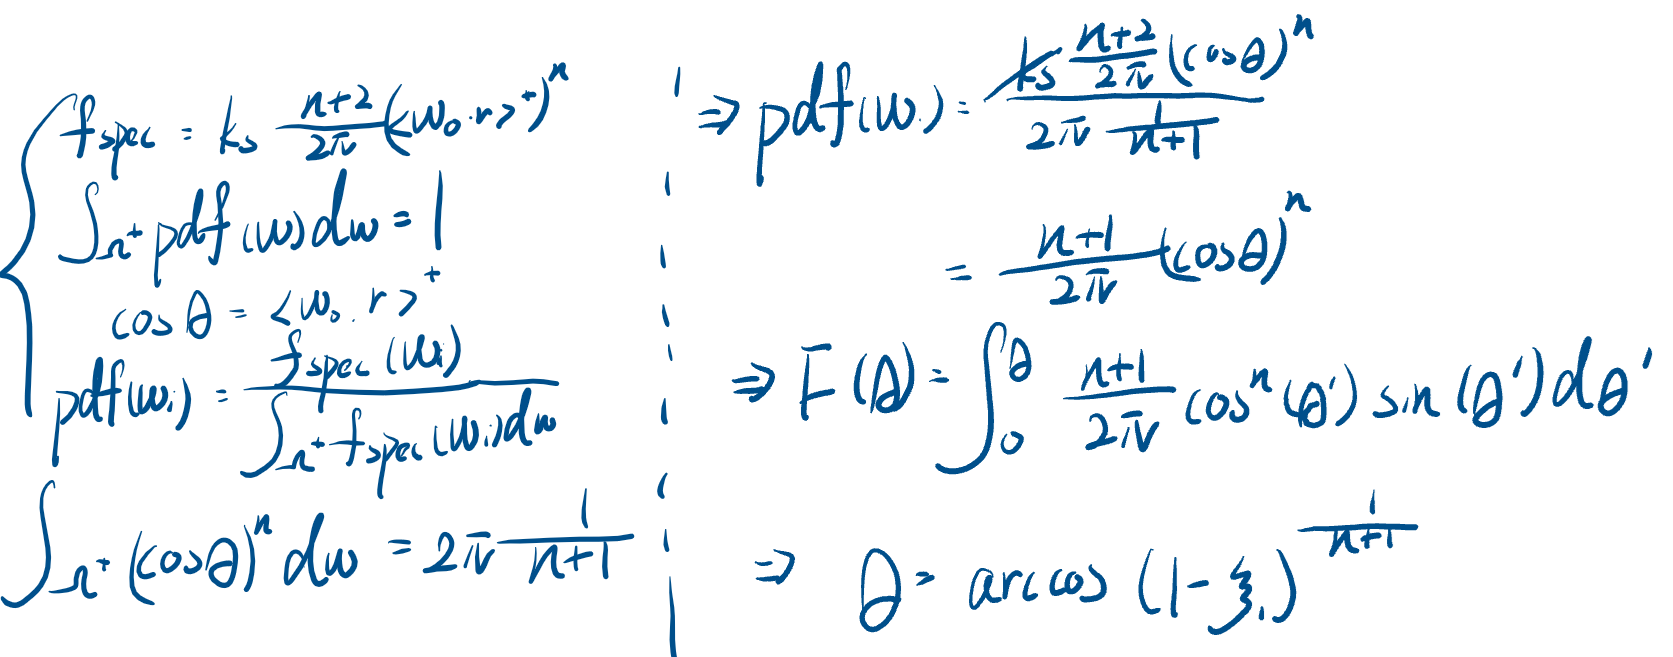 f_spec = k_s \frac{n+2}{2π} (<w_o · r>^+)^n
∫_{Ω^+} pdf(w) dw = 1
cos θ = <w_o · r>^+
pdf(w_i) = \frac{f_spec(w_i)}{∫_{Ω^+} f_spec(w_i) dw}
∫_{Ω^+} (cos θ)^n dw = 2π \frac{1}{n+1}
⇒ pdf(w_i) = \frac{k_s \frac{n+2}{2π} (cos θ)^n}{2π \frac{1}{n+1}}
= \frac{n+1}{2π} (cos θ)^n
⇒ F(θ) = ∫_0^θ \frac{n+1}{2π} cos^n(θ') sin(θ') dθ'
⇒ θ = arccos (1 - ξ_1)^{\frac{1}{n+1}}